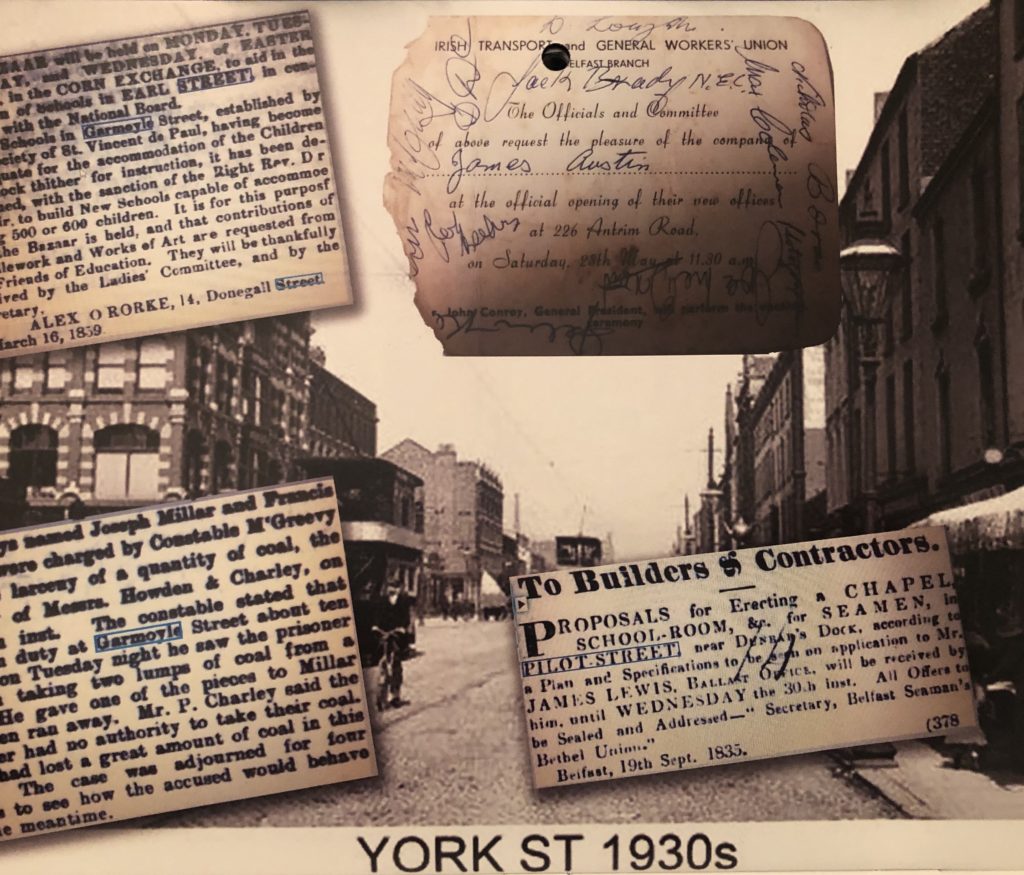 will be held on MONDAY, TUES-
AY, and WEDNESDAY, of EASTER
in the CORN EXCHANGE, to aid in the
of Schools in EARL STREET, in con-
with the National Board.
Schools in Garmoyle Street, established by
ciety of St. Vincent de Paul, having become
quate for the accommodation of the Children
ock thither for instruction, it has been de-
ed, with the sanction of the Right Rev. Dr
ir. to build New Schools capable of accommoe
500 or 600 children. It is for this purposf
the Bazaar is held, and that contributions of
llework and Works of Art are requested from
Friends of Education. They will be thankfully
ived by the Ladies' Committee, and by the
retary.
ALEX O'RORKE, 14, Donegall Street.
March 16, 1859
IRISH TRANSPORT and GENERAL WORKERS' UNION
ELFAST BRANCH
Jack Brady N.E.C.
The Officials and Committee
of above request the pleasure of the company of
James Austin
at the official opening of their new offices
at 226 Antrim Road,
on Saturday, 28th May at 11.30 a.m.
John Conroy, General President, will perform the opening
ceremony
Nicholas
ys named Joseph Millar and Francis
were charged by Constable M'Greevy
larceny of a quantity of coal, the
of Messrs. Howden & Charley, on
inst. The constable stated that
duty at Garmoyle Street about ten
on Tuesday night he saw the prisoner
taking two lumps of coal from a
He gave one of the pieces to Millar
en ran away. Mr. P. Charley said the
er had no authority to take their coal.
had lost a great amount of coal in this
The case was adjourned for four
to see how the accused would behave
e meantime.
To Builders & Contractors.
PROPOSALS for Erecting a CHAPEL,
SCHOOL-ROOM, &c. for SEAMEN, in
PILOT-STREET near DUNBAR'S DOCK, according to
a Plan and Specifications to be seen on application to Mr.
JAMES LEWIS, BALLAST OFFICE, will be received by
him, until WEDNESDAY the 30th inst. All Offers to
be Sealed and Addressed—"Secretary, Belfast Seaman's
Bethel Union."
Belfast, 19th Sept. 1835.
(378
YORK ST 1930s